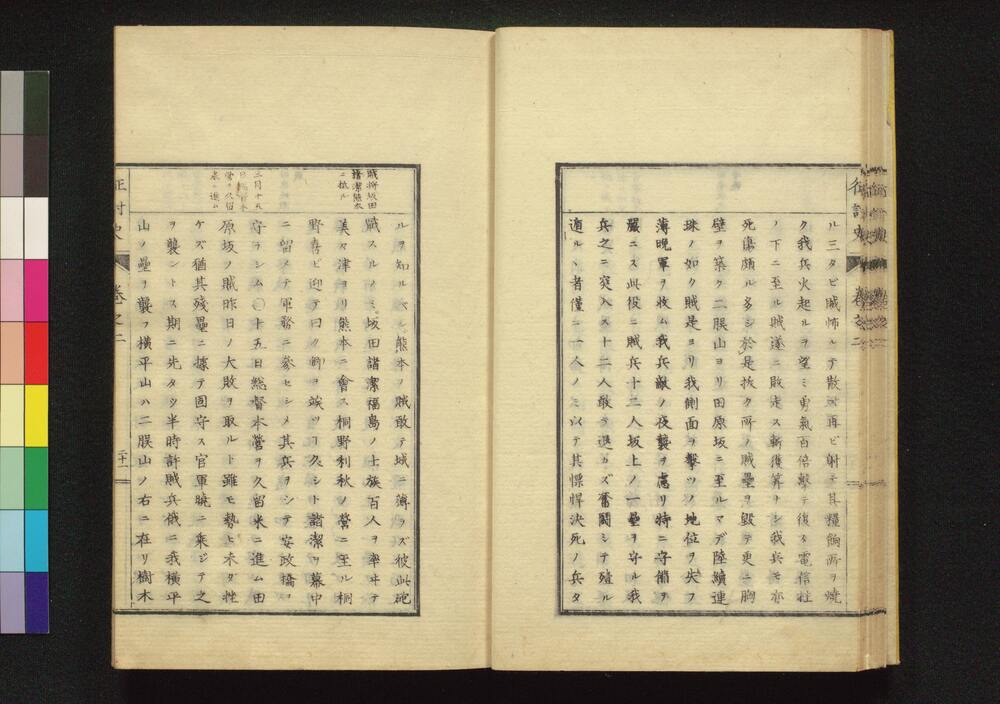 ル三タビ賊怖ルテ散ズ再ビ射テ其糧餉所ヲ焼
ク我兵火起ルヲ望ミ勇氣百倍撃テ復タ電信柱
ノ下ニ至ル賊遂ニ敗走ス斬獲算ナシ我兵モ亦
死傷頗ル多シ於是抜ク所ノ賊壘ヲ毀テ更ニ胸
壁ヲ築ク二股山ヨリ田原坂ニ至ルマデ陸續連
珠ノ如ク賊是ヨリ我側面ヲ撃ツノ地位ヲ失フ
薄晩軍ヲ收ム我兵敵ノ夜襲ヲ慮リ特ニ守備ヲ
嚴ニス此役ニ賊兵十二人坂上ノ一壘ヲ守ル我
兵之ニ突入ス十二人敢テ退カズ奮闘シテ殪ル
遁ルヽ者僅ニ一人ノミ以テ其慓悍決死ノ兵タ
征討史
卷之二
ルヲ知ルベシ熊本ノ賊敢テ城ニ薄ラズ彼此砲
戰スルノミ坂田諸潔福島ノ士族百人ヲ率ヰテ
美々津ヨリ熊本ニ會ス桐野利秋ノ營ニ至ル桐
野喜ビ迎テ曰ク卿ヲ竢ツ久シト諸潔ヲ幕中
ニ留メテ軍務ニ參セシメ其兵ヲシテ安政橋ヲ
守ラシム〇十五日総督本營ヲ久留米ニ進ム田
原坂ノ賊昨日ノ大敗ヲ取ルト雖モ勢ヒ未ダ挫
ケズ猶其殘壘ニ據テ固守ス官軍暁ニ乘ジテ之
ヲ襲ントス期ニ先タツ半時許賊兵俄ニ我横平
山ノ壘ヲ襲フ横平山ハ二股山ノ右ニ在リ樹木
賊将坂田
諸潔熊本
ニ抵ル
三月十五
日総督本
營ヲ久留
米ニ進ム
征討史
卷之二
二十一